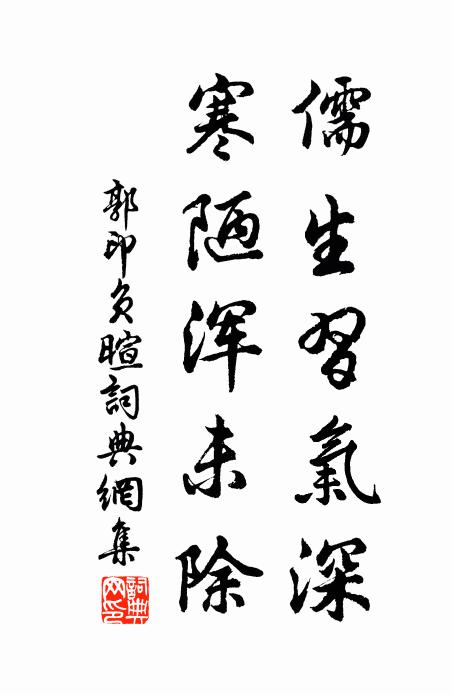 儒生習氣深
寒陋浑未除
郭印負暄詞典網集
詞典網印